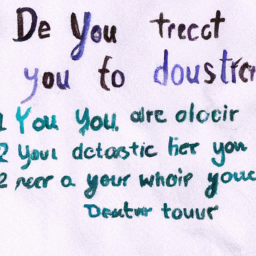 De You trect
you to doustrer
1 You You, are olocir
2 Your dctastic her you
2 neer a your whoir youe
Deutwr touur